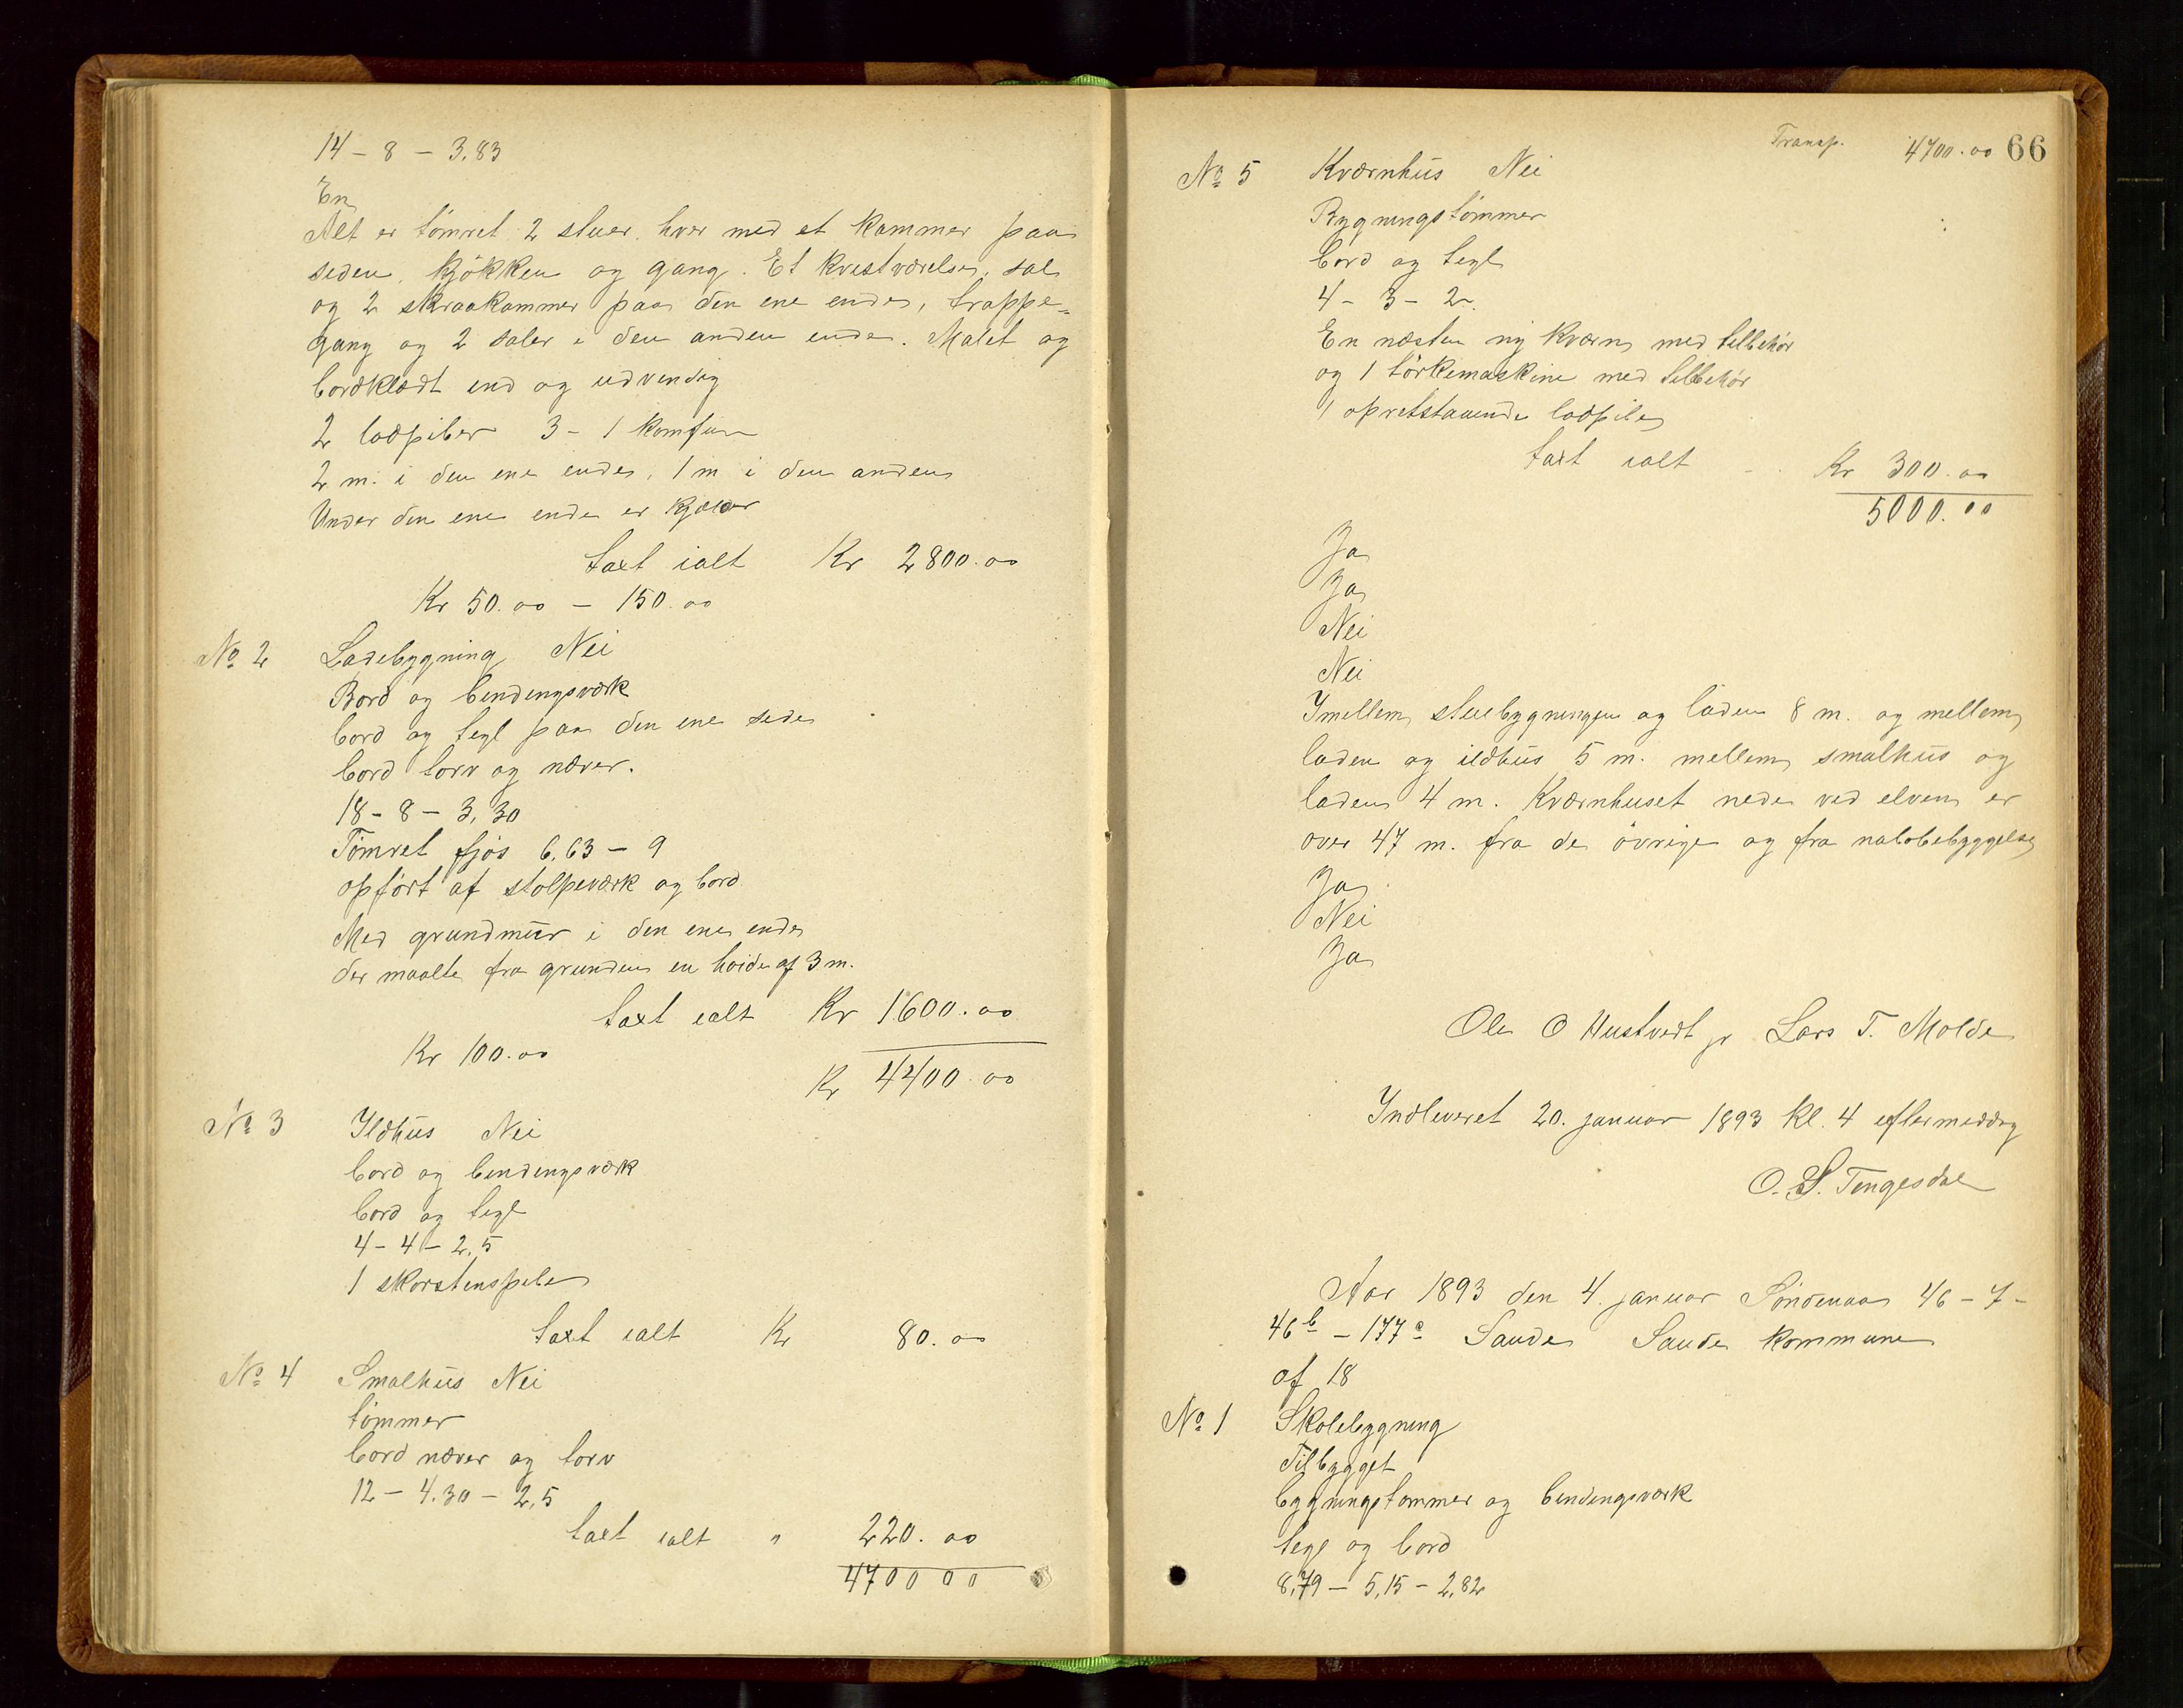 14 – 8 – 3,83
En
Alt er tömret 2 stuer hver med et kammer paa
siden, kjökken og gang. Et kvistværelse, sal
og 2 skraakammer paa den ene ende, trappe-
gang og 2 saler i den anden ende. Malet og
bordklædt ind og udvendig
2 lodpiber 3 – 1 komfur
2 m. i den ene ende, 1 m i den anden
Under den ene ende er kjælder
taxt ialt Kr 2800.00
Kr 50.00 – 150.00
No 2 Ladebygning Nei
Bord og bindingsværk
bord og tegl paa den ene side
bord torv og næver.
18 – 8 – 3,30
Tömret fjös 6,63 – 9
opfört af stolpeværk og bord
Med grundmur i den ene ende
der maalte fra grunden en höide af 3 m.
taxt ialt Kr 1600.00
Kr 100.00
Kr 4400.00
No 3 Ildhus Nei
bord og bindingsværk
bord og tegl
4 – 4 – 2,5
1 skorstenspibe
taxt ialt Kr 80.00
No 4 Smalhus Nei
tömmer
bord næver og torv
12 – 4.30 – 2,5
taxt ialt " 220.00
4700 00
Transp. 4700.00 66
No 5 Kværnhus Nei
Bygningstömmer
bord og tegl
4 – 3 – 2
En næsten ny kværn med tilbehör
og 1 törkemaskine med tilbehör
1 opretstaaende lodpibe
taxt ialt Kr 300.00
5000.00
Ja
Ja
Nei
Nei
Imellem stuebygningen og laden 8 m. og mellem
laden og ildhus 5 m. mellem smalhus og
laden 4 m. Kværnhuset nede ved elven er
over 47 m. fra de övrige og fra nabobebyggelse
Ja
Nei
Ja
Ole O Hustvedt jr Lars T. Molde
Indleveret 20. januar 1893 Kl. 4 eftermiddag
O. S. Tengesdal
Aar 1893 den 4. januar Söndenaa 46 – 7 –
46b – 177a Saude Saude kommune
af 18
No 1 Skolebygning
Tilbygget
bygningstömmer og bindingsværk
tegl og bord
8,79 – 5,15 – 2,82